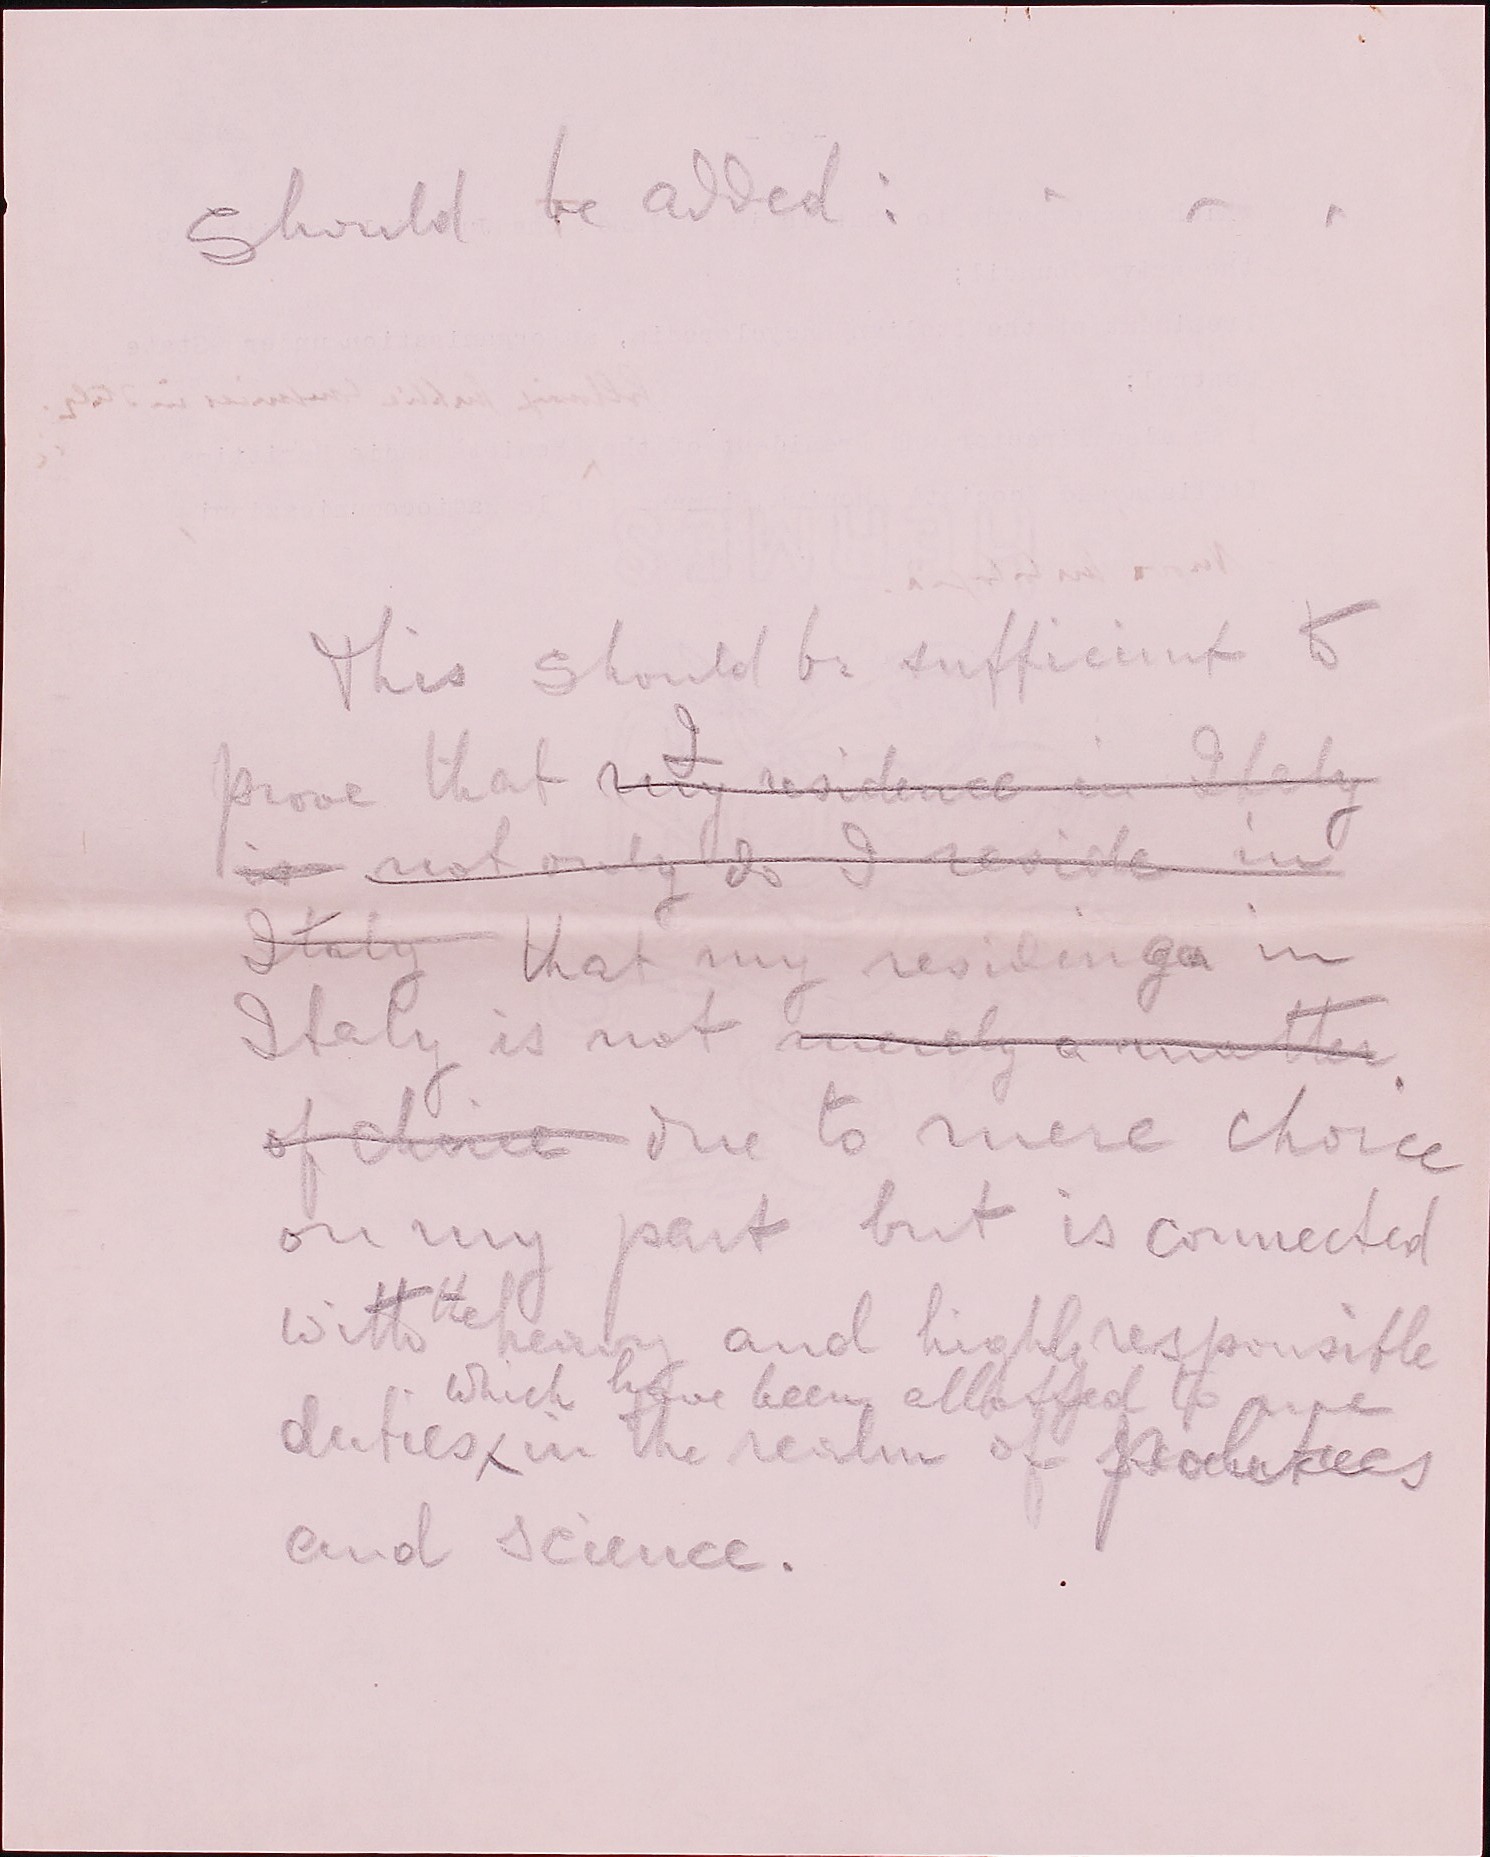 Should be added :
This should be sufficient to
I
prove that my residence in Italy
is not only do I reside in
Italy that my residing in
Italy is not merely a matter
of choice due to mere choice
on my part but is connected
with the heavy and highly responsible
which have been allotted to me
duties in the realm of
and science.